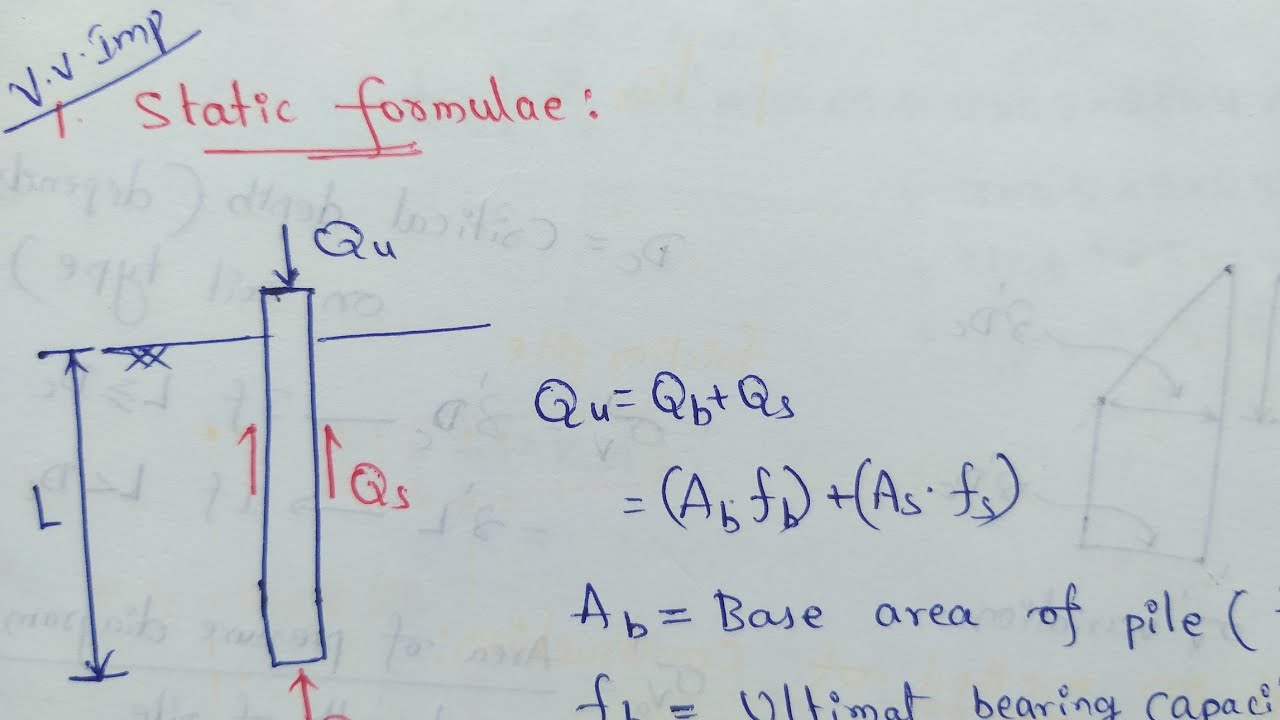 V.V.Imp
1. Static formulae:
Qu
Qs
L
Qu = Qb + Qs
= (Ab. fb) + (As. fs)
Ab = Base area of pile (
fb = Ultimat bearing capaci